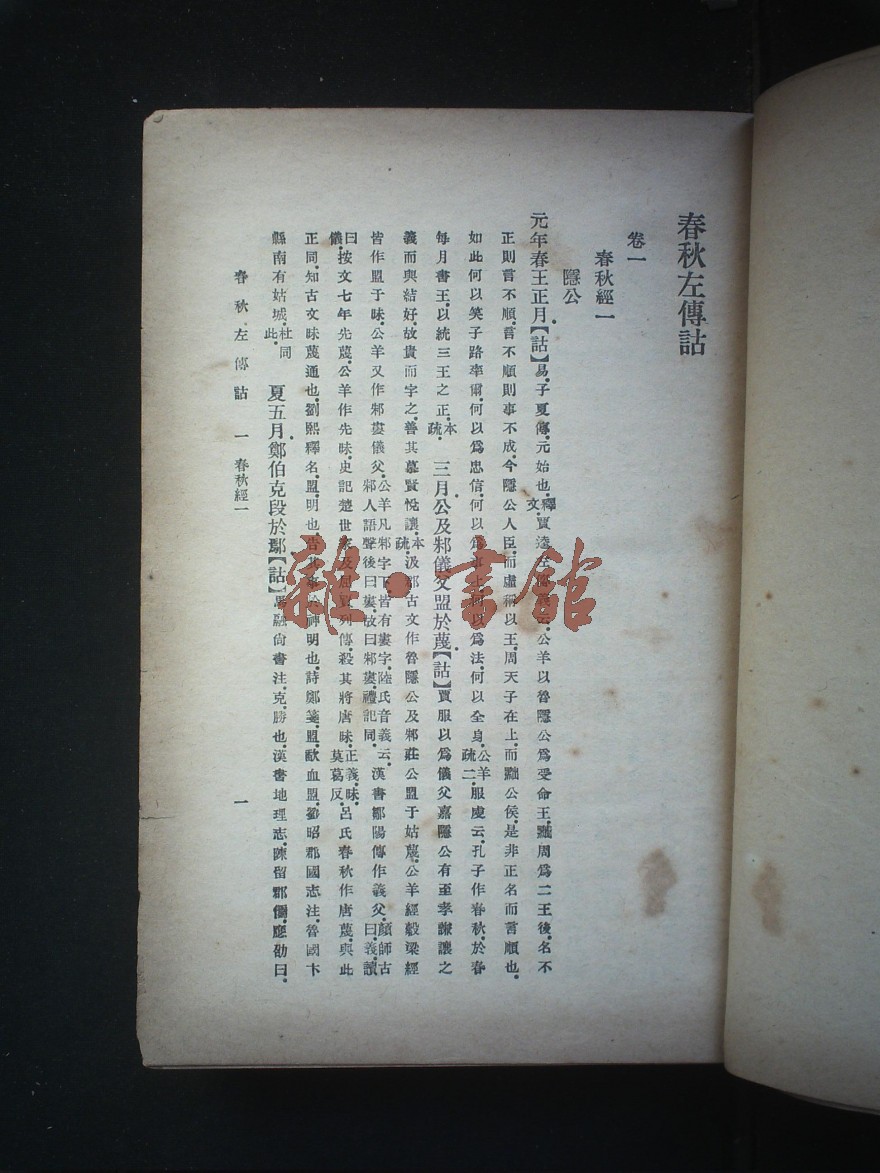 春秋左傳詁
卷一
春秋經一
隱公
元年春王正月.【詁】易.子夏傳.元始也.釋文.賈逵左傳云.公羊以魯隱公爲受命王.黜周爲二王後.名不
正則言不順.言不順則事不成.今隱公人臣.而虛稱以王.周天子在上.而黜公侯.是非正名而言順也.
如此何以笑子路率爾.何以爲忠信.何以爲事上.何以爲法.何以全身.公羊疏二.服虔云.孔子作春秋.於春
每月書王.以統三王之正.本疏.三月.公及邾儀父盟於蔑.【詁】賈服以爲儀父嘉隱公有至孝謙讓之
義而與結好.故貴而字之.善其慕賢悅讓.本疏.汲郡古文作魯隱公及邾莊公盟于姑蔑.公羊經穀梁經
皆作盟于昧.公羊又作邾婁儀父.公羊凡邾字下皆有婁字.陸氏音義云.邾人語聲後曰婁.故曰邾婁.禮記同.漢書鄒陽傳作義父.顏師古曰.義讀
曰儀.按文七年先蔑.公羊作先昧.史記楚世家及屈賈列傳.殺其將唐昧.正義.昧.莫葛反.呂氏春秋作唐蔑.與此
正同.知古文昧蔑通也.劉熙釋名.盟.明也.告其事於神明也.詩鄭箋.盟.歃血盟.劉昭郡國志注.魯國卞
縣南有姑城.杜同此.夏五月.鄭伯克段於鄢.【詁】馬融尙書注.克.勝也.漢書地理志.陳留郡傿.應劭曰.
春秋左傳詁 一 春秋經一 一
雜·書館